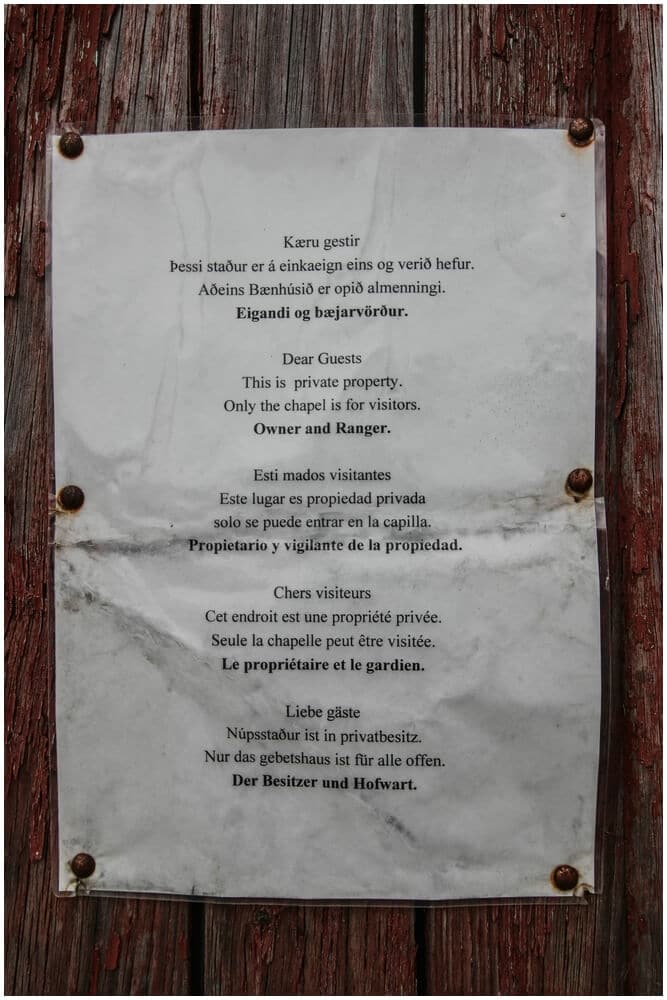 Kæru gestir
Þessi staður er á einkaeign eins og verið hefur.
Aðeins Bænhúsið er opið almenningi.
Eigandi og bæjarvörður.
Dear Guests
This is  private property.
Only the chapel is for visitors.
Owner and Ranger.
Esti mados visitantes
Este lugar es propiedad privada
solo se puede entrar en la capilla.
Propietario y vigilante de la propiedad.
Chers visiteurs
Cet endroit est une propriété privée.
Seule la chapelle peut être visitée.
Le propriétaire et le gardien.
Liebe gäste
Núpsstaður ist in privatbesitz.
Nur das gebetshaus ist für alle offen.
Der Besitzer und Hofwart.